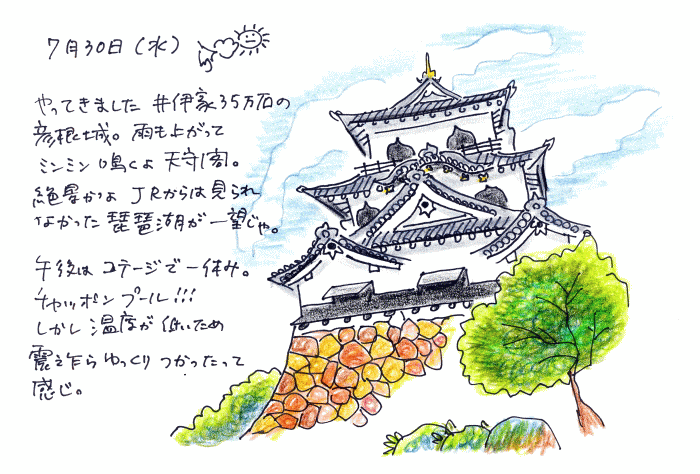 7月30日（水）
やってきました 井伊家35万石の
彦根城。雨も上がって
ミンミン鳴くよ 天守閣。
絶景かな JRからは見られ
なかった 琵琶湖が一望じゃ。
午後は コテージで一休み。
チャッポン プール!!!
しかし 温度が 低いため
震えながら ゆっくり つかったって
感じ。